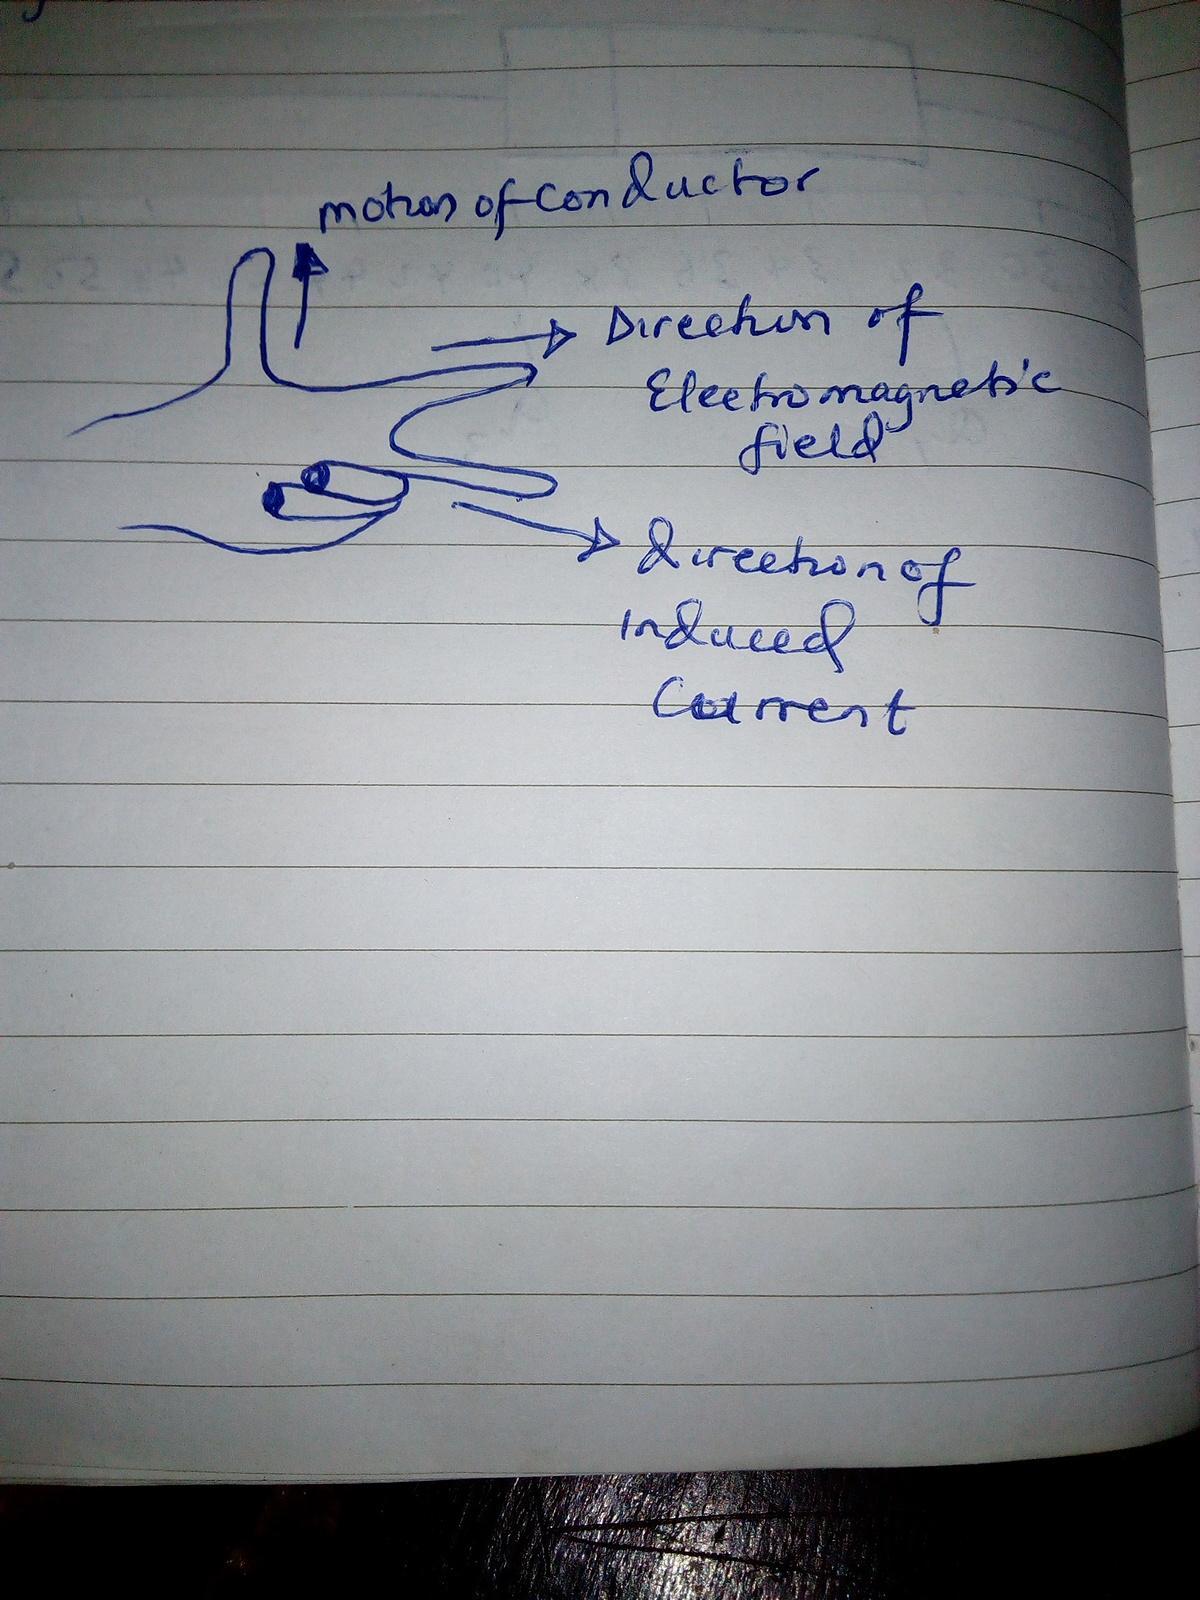 motion of conductor
Direction of
Electromagnetic
field
direction of
Induced
Current